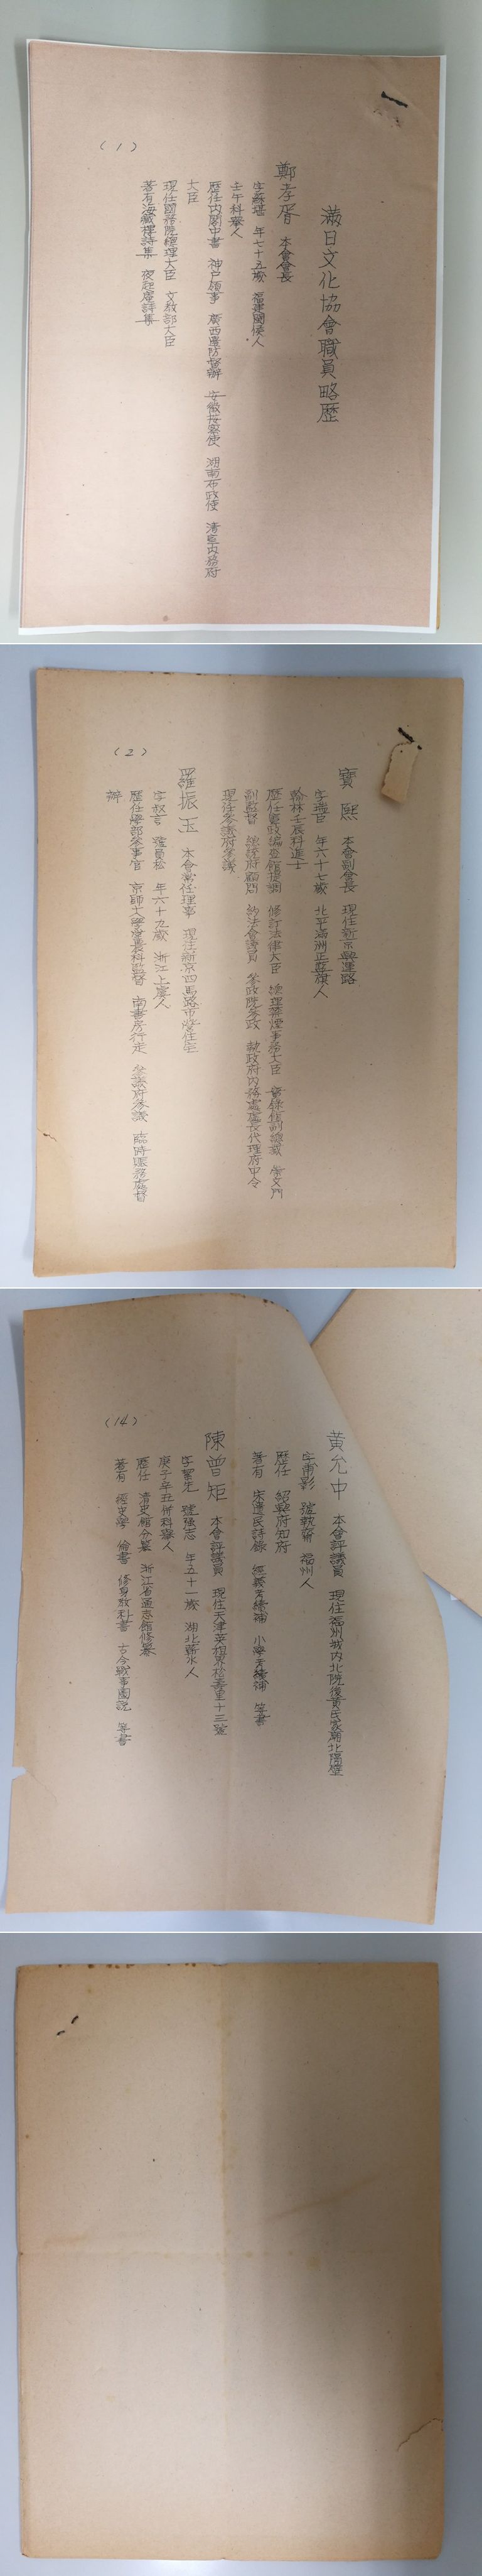 滿日文化協會職員略歷
鄭孝胥 本會會長
字蘇堪 年七十五歲 福建閩侯人
壬午科擧人
歷任內閣中書 神戶領事 廣西邊防督辦 安徽按察使 湖南布政使 清室內務府
大臣
現任國務院總理大臣 文敎部大臣
著有海藏樓詩集 夜起庵詩集
(1)
寶熙 本會副會長 現住新京興運路
字瑞臣 年六十七歲 北平滿洲正藍旗人
翰林壬辰科進士
歷任憲政編查館提調 修訂法律大臣 總理禁煙事務大臣 實錄館副總裁 崇文門
副監督 總統府顧問 約法會議員 參政院參政 執政府內務處處長代理府中令
現任參議府參議
羅振玉 本會常任理事 現住新京四馬路市營住宅
字叔言 號貞松 年六十九歲 浙江上虞人
歷任學部參事官 京師大學堂農科監督 南書房行走 參議府參議 臨時賑務處督
辦
(2)
黃允中 本會評議員 現住福州城內北院後黃氏家廟北隔壁
字甫影 號執齋 福州人
歷任 紹興府知府
著有 宋遺民詩錄 經義考續補 小學考續補 等書
陳曾矩 本會評議員 現住天津英租界松壽里十三號
字絜先 號强志 年五十一歲 湖北蘄水人
庚子辛丑併科擧人
歷任 清史館分纂 浙江省通志館修纂
著有 經史學 倫書 修身敎科書 古今戰事圖說 等書
(14)